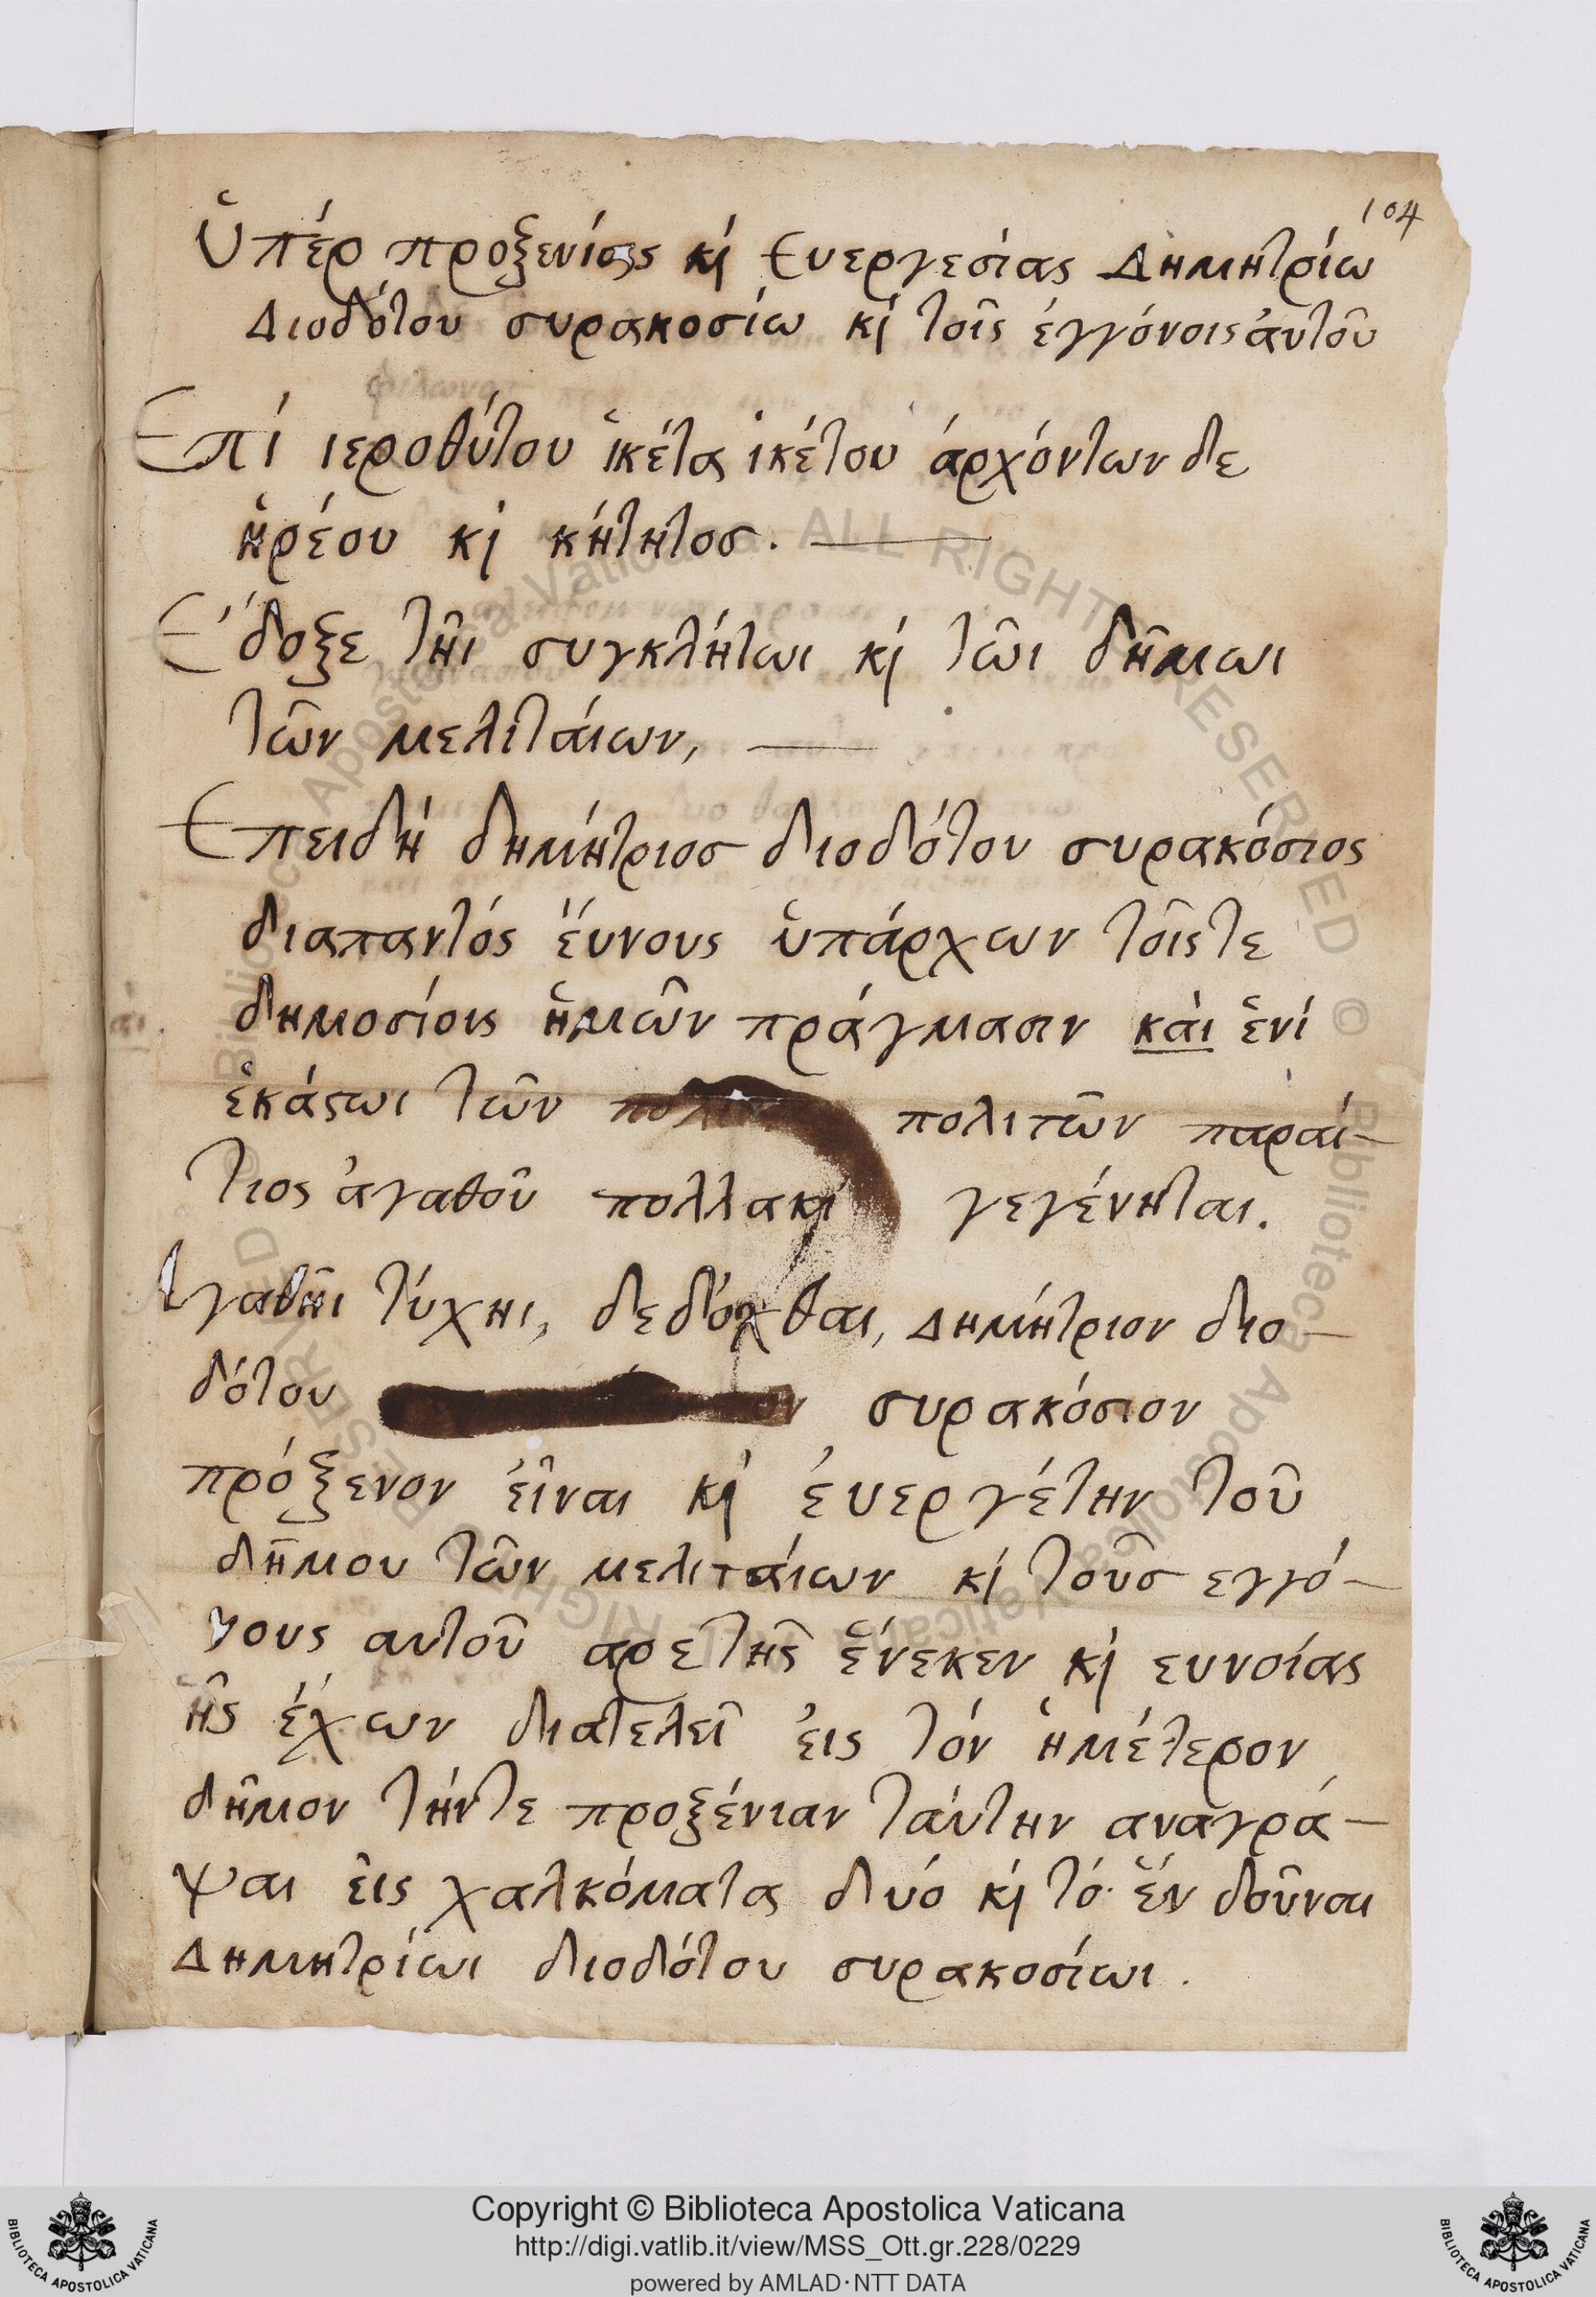 104
Ὑπέρ προξενίας κὶ Ευεργεσίας Δημητρίω
Διοδότου συρακοσίω κὶ τοῖς ἐγγόνοις ἀυτοῦ
Επί ιεροθύτου ἱκέτα ἱκέτου ἀρχόντων δε
ἡρέου κὶ κήτητος.
Εδοξε τῆι συγκλήτωι κὶ τῶι δήμωι
τῶν μελιταίων,
Επειδή δημήτριος διοδότου συρακόσιος
διαπαντός ἔυνους ὑπάρχων τοῖς τε
δημοσίοις ἡμῶν πράγμασιν κὰι ἑνί
ἑκάστωι τῶν πολιτῶν παράι-
τιος ἀγαθοῦ πολλακι γεγένηται.
Αγαθῆι τύχηι, δεδόχθαι, Δημήτριον διο-
δότου συρακόσιον
πρόξενον ἐῖναι κὶ ἐυεργέτην τοῦ
δήμου τῶν μελιτάιων κὶ τοῦς εγγό-
νους αυτοῦ αρετῆς ἕνεκεν κὶ ευνοίας
ἧς ἔχων διατελεῖ ἐις τόν ἡμέτερον
δῆμον τήντε προξένιαν τάυτην αναγρά-
ψαι ἐις χαλκόματα δυό κὶ τό ἕν δοῦναι
Δημητρίωι διοδότου συρακοσίωι.
Copyright © Biblioteca Apostolica Vaticana
http://digi.vatlib.it/view/MSS_Ott.gr.228/0229
powered by AMLAD·NTT DATA